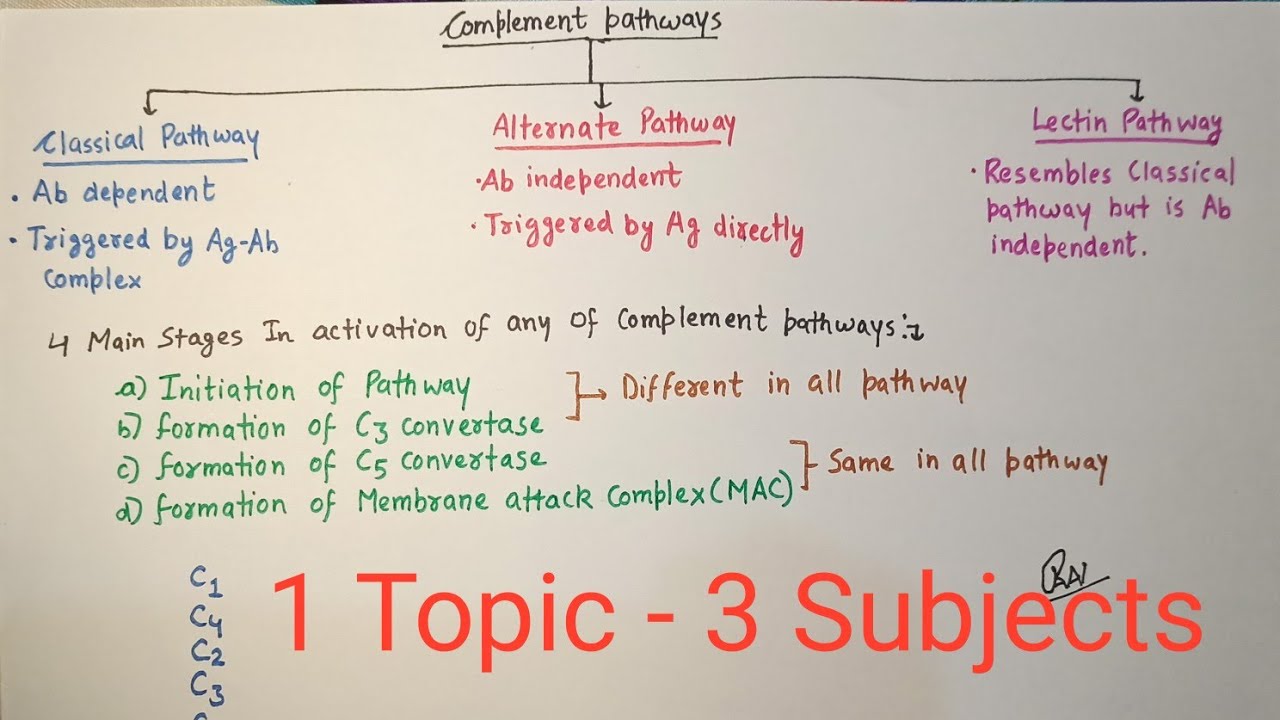 Complement pathways
Classical Pathway
• Ab dependent
• Triggered by Ag-Ab
Complex
Alternate Pathway
• Ab independent
• Triggered by Ag directly
Lectin Pathway
• Resembles Classical
pathway but is Ab
independent.
4 Main Stages In activation of any of Complement pathways:↴
a) Initiation of Pathway
b) formation of C3 convertase
→ Different in all pathway
c) formation of C5 convertase
d) formation of Membrane attack Complex (MAC)
Same in all pathway
C1
C4
C2
C3
1 Topic - 3 Subjects